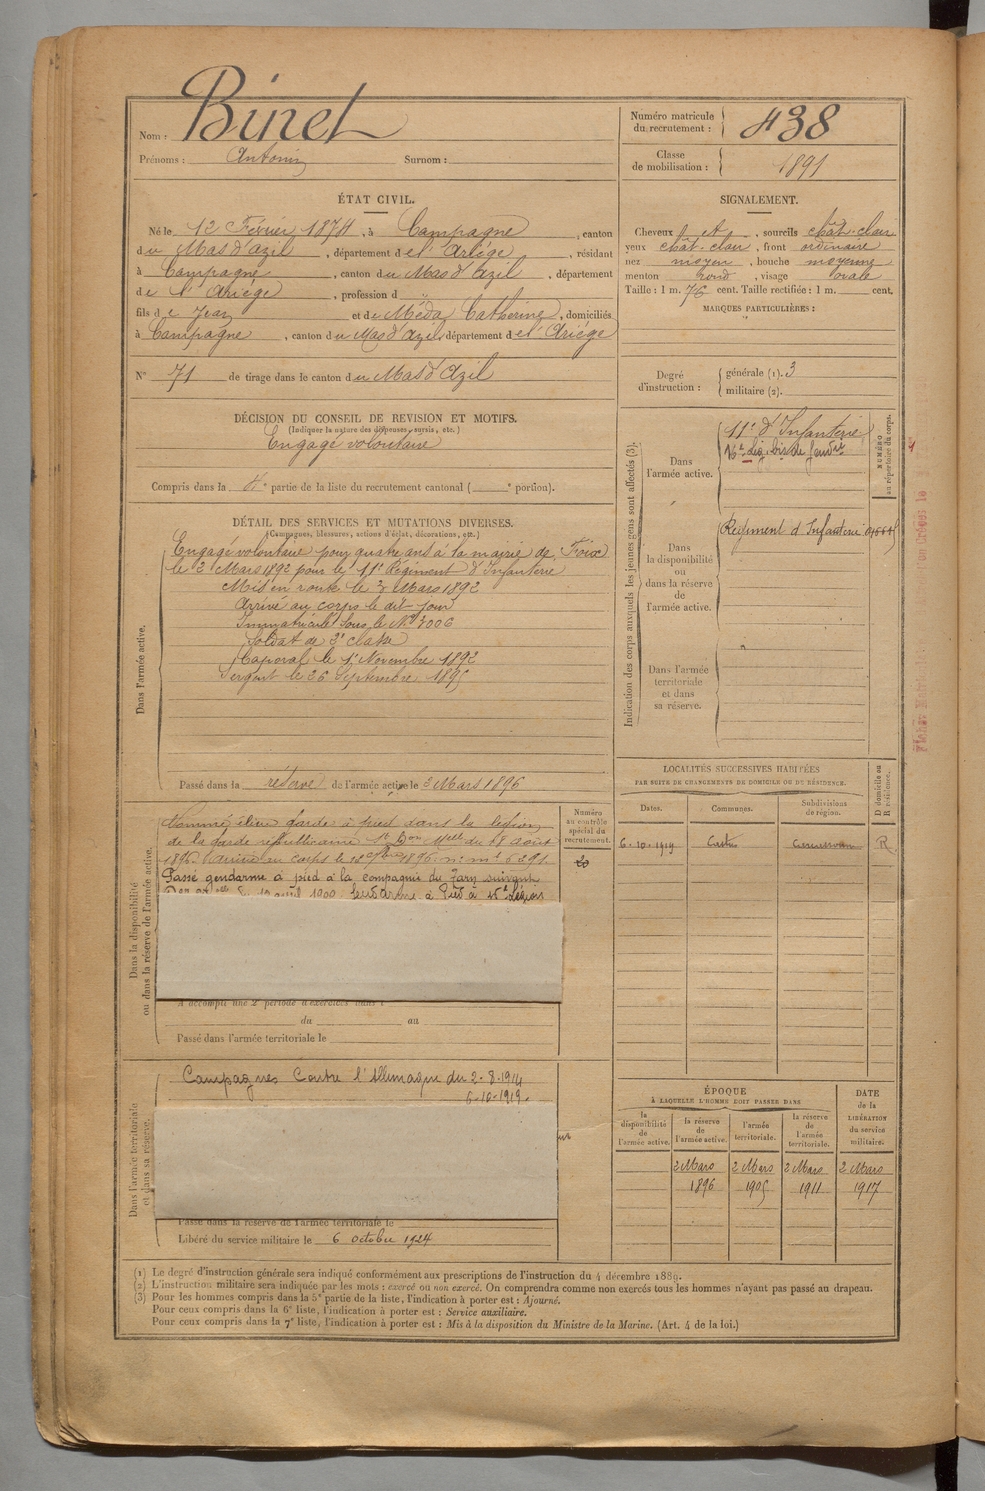 Nom : Binet
Prénoms : Antonin Surnom :
Numéro matricule du recrutement : 438
Classe de mobilisation : 1891
ÉTAT CIVIL.
Né le 12 Février 1874, à Campagne, canton
du Mas d'Azil, département de l'Ariège, résidant
à Campagne, canton du Mas d'Azil, département
de l'Ariège, profession d
fils de Jean et de Méda Catherine, domiciliés
à Campagne, canton du Mas d'Azil, département de l'Ariège
N° 71 de tirage dans le canton du Mas d'Azil
SIGNALEMENT.
Cheveux et, sourcils chât-clair
yeux chât-clair, front ordinaire
nez moyen, bouche moyenne
menton rond, visage ovale
Taille : 1 m. 76 cent. Taille rectifiée : 1 m. cent.
MARQUES PARTICULIÈRES :
Degré d'instruction : générale (1). 3
militaire (2).
DÉCISION DU CONSEIL DE REVISION ET MOTIFS.
(Indiquer la nature des dispenses, sursis, etc.)
Engagé volontaire
Compris dans la 4e partie de la liste du recrutement cantonal ( e portion).
DÉTAIL DES SERVICES ET MUTATIONS DIVERSES.
(Campagnes, blessures, actions d'éclat, décorations, etc.)
Dans l'armée active.
Engagé volontaire pour quatre ans à la mairie de Foix
le 2 Mars 1892 pour le 11e Régiment d'Infanterie
Mis en route le 2 Mars 1892
Arrivé au corps le dit jour
Immatriculé sous le N° 3006
Soldat de 2e classe
Caporal le 1er Novembre 1892
Sergent le 26 Septembre 1895
Passé dans la réserve de l'armée active le 2 Mars 1896
Indication des corps auxquels les jeunes gens sont affectés (3).
NUMÉRO au répertoire du corps.
Dans l'armée active.
11e d'Infanterie
16e Lég. bis de Gendrie
Dans la disponibilité ou dans la réserve de l'armée active.
Régiment d'Infanterie
Dans l'armée territoriale et dans sa réserve.
Dans la disponibilité ou dans la réserve de l'armée active.
Nommé élève garde à pied dans la légion
de la garde républicaine le 18 août
1896. Arrivé au corps le 12 7bre 1896 n° mle 6291
Passé gendarme à pied à la compagnie du Tarn suivant
10 avril 1900 Gendarme à Pied à 16e Légion
A accompli une 2e période d'exercices dans l
du au
Passé dans l'armée territoriale le
Numéro au contrôle spécial du recrutement.
LOCALITÉS SUCCESSIVES HABITÉES
PAR SUITE DE CHANGEMENTS DE DOMICILE OU DE RÉSIDENCE.
D domicile ou R résidence.
Dates. Communes. Subdivisions de région.
6-10-1919 Castres Carcassonne R
Dans l'armée territoriale et dans sa réserve.
Campagnes Contre l'Allemagne du 2-8-1914
6-10-1919.
Passé dans la réserve de l'armée territoriale le
Libéré du service militaire le 6 octobre 1924
ÉPOQUE
À LAQUELLE L'HOMME DOIT PASSER DANS
DATE de la LIBÉRATION du service militaire.
la disponibilité de l'armée active. la réserve de l'armée active. l'armée territoriale. la réserve de l'armée territoriale.
2 Mars 2 Mars 2 Mars 2 Mars
1896 1905 1911 1917
(1) Le degré d'instruction générale sera indiqué conformément aux prescriptions de l'instruction du 4 décembre 1889.
(2) L'instruction militaire sera indiquée par les mots : exercé ou non exercé. On comprendra comme non exercés tous les hommes n'ayant pas passé au drapeau.
(3) Pour les hommes compris dans la 5e partie de la liste, l'indication à porter est : Ajourné.
Pour ceux compris dans la 6e liste, l'indication à porter est : Service auxiliaire.
Pour ceux compris dans la 7e liste, l'indication à porter est : Mis à la disposition du Ministre de la Marine. (Art. 4 de la loi.)